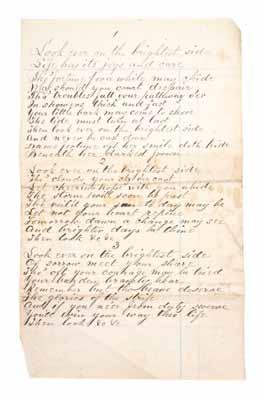 1
Look ever on the brightest side
Life has its joys and care
Tho' fortune frown while may chide
Why should you court despair
Tho' troubles fall your pathway o'er
In showers thick and fast
Your little bark may come to shore
The tide must turn at last
Then look ever on the brightest side
And never be cast down
Dame fortune oft her smile doth hide
Beneath her frown
2
Look ever on the brightest side
Tho' clouds your sky o'ercast
Let cherished hope with you abide
The storm will soon be past
She until your to day may be
Let not your heart repine
Tomorrow's dawn a change may see
And brighter days be thine
Then look &c &c
3
Look ever on the brightest side
Or sorrow meet your share
Tho' oft your courage may be tried
Your burden bravely bear
Remember but the brave deserve
The glories of the strife
And if you ne'er from duty swerve
You'll win your way thro life
Then look &c &c